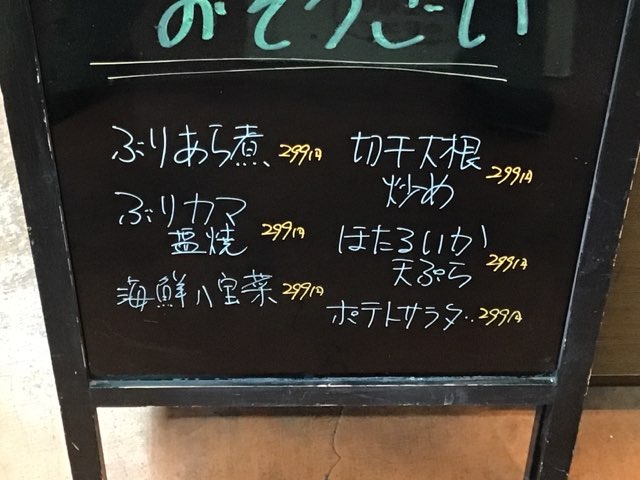 おそうざい
ぶりあら煮 299円
ぶりカマ
塩焼 299円
海鮮八宝菜 299円
切干大根
炒め 299円
ほたるいか
天ぷら 299円
ポテトサラダ‥299円